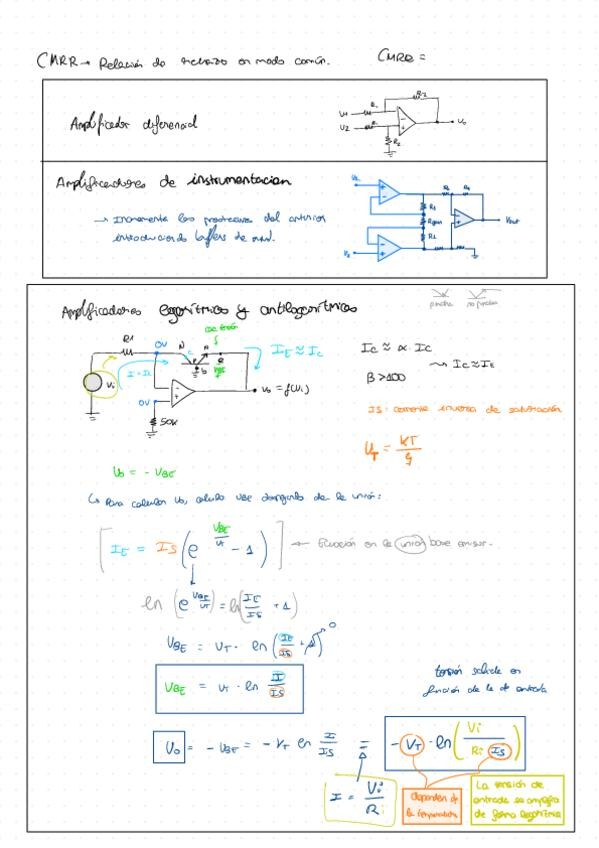 CMRR → Relación de rechazo en modo común.    CMRR =
Amplificador diferencial
R1
R2
U1
U2
R2
Vo
Amplificadores de instrumentacion
→ Incrementa las prestaciones del anterior
introduciendo buffers de
R1
Rgan
R1
Vout
Amplificadores logarítmicos y antilogarítmicos
R1
0V
N
P
N
IE ≈ IC
Vi
0V
50K
vo = f(Vi)
IC ≈ α · IC
→ IC ≈ IE
β > 100
IS: corriente inversa de saturación
UT = KT / q
Uo = - VBE
↳ Para calcular Vo, calculo VBE de la unión:
[ IE = IS ( e^(VBE/VT) - 1 ) ] ← Ecuación en la unión base emisor.
ln ( e^(VBE/VT) ) = ln ( IE/IS + 1 )
VBE = VT · ln ( IE/IS + 1 ) 0
VBE = VT · ln I/IS
tensión salida en
función de la de entrada
Vo = - VBE = - VT ln I/IS = - VT · ln ( Vi / Ri IS )
I = Vi / Ri
dependen de
la temperatura
La tensión de
entrada se amplía
de forma logarítmica